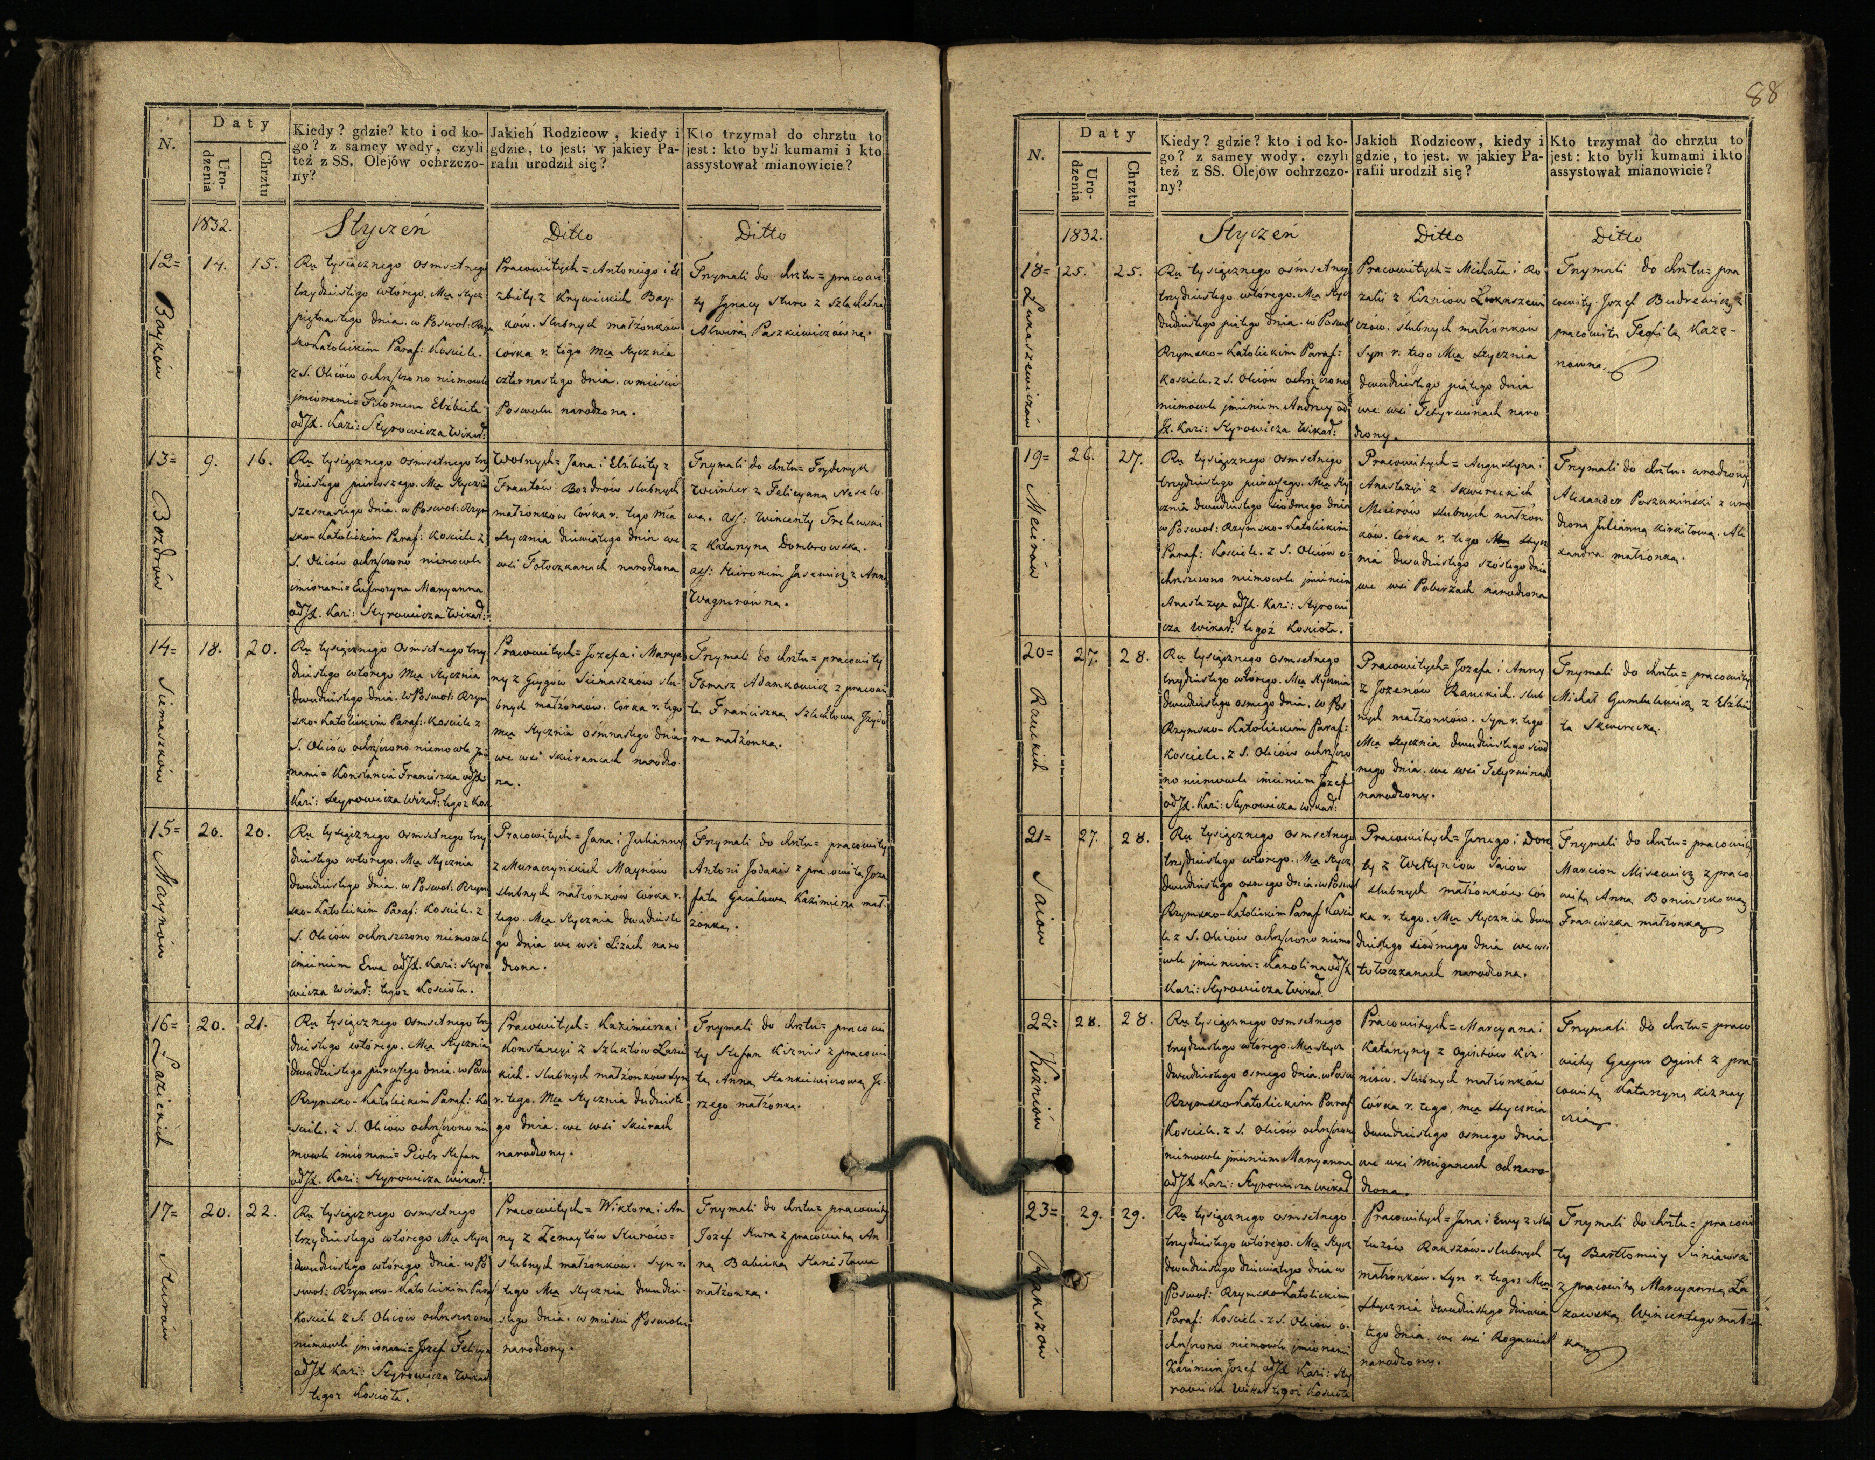 88
N.
Daty
Urodzenia
Chrztu
Kiedy? gdzie? kto i od ko-
go? z samey wody, czyli
też z SS. Olejów ochrzczo-
ny?
Jakich Rodzicow, kiedy i
gdzie, to jest: w jakiey Pa-
rafii urodził się?
Kto trzymał do chrztu to
jest: kto byli kumami i kto
assystował mianowicie?
1832.
Styczeń
Ditto
Ditto
12=
14.
15.
Ru tysiącznego osmsetnego
trzydziestego wtórego. Mca Stycz
piętnastego dnia. w Poswol: Rzym
sko Katolickim Paraf: Kosciele.
z S. Oliów ochrzczono niemowle
jmionami= Filomena Elżbieta
od JX. Kazi: Styrowicza Wikar:
Pracowitych= Antoniego i El
zbiety z Krywickich Bay-
ków. slubnych małżonków
corka r. tego Mca Stycznia
czternastego dnia. w mieście
Poswolu narodzona.
Trzymali do chrztu= pracowi
ty Jgnacy Sturo z Szlachetną
Alwirą Paszkiewiczowną.
13=
9.
16.
Bozdrów
Ru tysiącznego osmsetnego trzy
dziestego pierwszego. Mca Stycznia
szesnastego dnia. w Poswol: Rzym
sko-Katolickim Paraf: Kosciele z
S. Oliów ochrzczono niemowle
imionami= Eufrozyna Maryanna
od JX. Kazi: Styrowicza Wikar:
Wolnych= Jana i Elzbiety z
Frantów Bozdrów slubnych
małżonkow Corka r. tego Mca
Stycznia dziewiątego dnia we
wsi Tołoczkanach narodzona
Trzymali do chrztu= Fryderyk
z Felicyaną
Wincenty
z Katarzyną Dombrowską.
ass: Hieronim z Anną
Wagnerówną.
14=
18.
20.
Siemaszków
Ru tysiącznego osmsetnego trzy
dziestego wtórego Mca Stycznia
dwudziestego dnia. w Poswol: Rzym
sko-Katolickim Paraf: Kosciele z
S. Oliów ochrzczono niemowle jmio
nami= Konstancia Franciszka od JX.
Kazi: Styrowicza Wikar: tegoz Kos:
Pracowitych= Jozefa i Marya
ny z Siemaszkow slu-
bnych małżonków. Córka r. tego
Mca Stycznia ośmnastego dnia
we wsi Skieranach narodzo
na.
Trzymali do chrztu= pracowity
Tomasz Adamkowicz z pracowi
tą Franciszką Szlachtową
małżonką.
15=
20.
20.
Maynów
Ru tysiącznego osmsetnego trzy
dziestego wtórego. Mca Stycznia
dwudziestego dnia. w Poswol: Rzym
sko-Katolickim Paraf: Kosciele. z
S. Oliów ochrzszczono niemowle
imieniem Ewa od JX. Kazi: Styro
wicza Wikar: tegoz Kosciola.
Pracowitych= Jana i Julianny
z Muraczyńskich Maynów
slubnych małżonków Córka r.
tego. Mca Stycznia dwudzieste
go dnia we wsi Liżach naro
dzona.
Trzymali do chrztu= pracowity
Antoni z pracowitą Joze
fatą Kazimierza mał
żonką.
16=
20.
21.
Ru tysiącznego osmsetnego trzy
dziestego wtórego. Mca Stycznia
dwudziestego pierwszego dnia. w Poswo
Rzymsko-Katolickim Paraf: Ko
sciele. z S. Oliów ochrzczono nie
mowle imionami= Piotr Stefan
od JX. Kazi: Styrowicza Wikar:
Pracowitych= Kazimierza i
Konstancyi z Szlachtów
kich. slubnych małżonków Syn
r. tego. Mca Stycznia dudzieste
go dnia. we wsi Skierach
narodzony.
Trzymali do chrztu= pracowi
ty Stefan Kiznis z pracowi
tą Anną Stankiewiczową Je-
rzego małżonką.
17=
20.
22.
Sturów
Ru tysiącznego osmsetnego
trzydziestego wtórego Mca Stycz
dwudziestego wtórego dnia. w Po
swol: Rzymsko-Katolickim Paraf
Kosciele z S. Oliów ochrzszczono
niemowle jmionami= Jozef Felicyan
od JX. Kazi: Styrowicza Wikar
tegoz Kosciola.
Pracowitych= Wiktora i An
ny z Zemaytów Sturów=
slubnych małżonków. Syn r.
tego Mca Stycznia dwudzie-
stego dnia. w mieście Poswolu
narodzony.
Trzymali do chrztu= pracowity
Jozef Kura z pracowitą An
ną Stanisława
małżonką.
N.
Daty
Urodzenia
Chrztu
Kiedy? gdzie? kto i od ko-
go? z samey wody, czyli
też z SS. Olejów ochrzczo-
ny?
Jakich Rodzicow, kiedy i
gdzie, to jest. w jakiey Pa-
rafii urodził się?
Kto trzymał do chrztu to
jest: kto byli kumami i kto
assystował mianowicie?
1832.
Styczeń
Ditto
Ditto
18=
25.
25.
Ru tysiącznego ośmsetnego
trzydziestego wtórego. Mca Stycz
dudziestego piątego dnia. w Poswol
Rzymsko-Katolickim Paraf:
Kosciele. z S. Oliów ochrzczono
niemowle jmieniem Andrzey od
JX. Kazi: Styrowicza Wikar:
Pracowitych= Michała i Ro
zalii z Kizniow Lukaszewi
czów. slubnych małżonków
Syn r. tego Mca Stycznia
dwudziestego piątego dnia
we wsi naro
dzony.
Trzymali do chrztu= pra
cowity Jozef Budrewicz z
pracowitą Teklą Kaze-
nowną.
19=
26.
27.
Meierów
Ru tysiącznego osmsetnego
trzydziestego pierwszego. Mca Sty
cznia dwudziestego siódmego dnia
w Poswol: Rzymsko-Katolickim
Paraf: Kosciele. z S. Oliów o-
chrzszczono niemowle jmieniem
Anastazya od JX. Kazi: Styrowi
cza Wikar: tegoż Kosciola.
Pracowitych= Augustyna i
Anastazyi z Skwereckich
Meierow slubnych małżon
ków. Córka r. tego Mca Stycz
nia dwudziestego szóstego dnia
we wsi Pobirżach narodzona
Trzymali do chrztu= urodzony
Alexander z uro
dzoną Julianną Ale
xandra małżonką.
20=
27.
28.
Rauckich
Ru tysiącznego osmsetnego
trzydziestego wtorego. Mca Stycznia
dwudziestego osmego dnia. w Pos
Rzymsko-Katolickim Paraf:
Kosciele. z S. Oliów ochrzczo
no niemowle imieniem Jozef
od JX. Kazi: Styrowicza Wikar:
Pracowitych= Jozefa i Anny
z Jozenów Rauckich. slub
nych małżonków. Syn r. tego
Mca Stycznia dwudziestego siód
mego dnia. we wsi
narodzony.
Trzymali do chrztu= pracowity
Michał z Elżbie
tą Skwerecką.
21=
27.
28.
Saiow
Ru tysiącznego osmsetnego
trzydziestego wtórego. Mca Stycz
dwudziestego osmego dnia w Poswol
Rzymsko-Katolickim Paraf Kosci
ele z S. Oliów ochrzczono niemo
wle jmieniem= Karolina od JX
Kazi: Styrowicza Wikar
Pracowitych= Jerzego i Doro
ty z Saiow
slubnych małżonków Cór
ka r. tego. Mca Stycznia dwu
dziestego siódmego dnia we wsi
Tołoczkanach narodzona.
Trzymali do chrztu= pracowity
Marcion Misiewicz z praco
witą Anną
Franciszka małżonką
22=
28.
28.
Kizniów
Ru tysiącznego osmsetnego
trzydziestego wtórego. Mca Stycz
dwudziestego osmego dnia. w Poswo
Rzymsko Katolickim Paraf
Kosciele. z S. Oliów ochrzczono
niemowle jmieniem Maryanna
od JX Kazi: Styrowicza Wikar
Pracowitych= Marcyana i
Katarzyny z Ogintów Kiz-
niów. slubnych małżonków
Córka r. tego, mca Stycznia
dwudziestego osmego dnia
we wsi naro-
dzona.
Trzymali do chrztu= praco
wity Gaspar Ogint z pra
cowitą Katarzyną
23=
29.
29.
Ru tysiącznego osmsetnego
trzydziestego wtórego. Mca Stycz
dwudziestego dziewiątego dnia w
Poswol: Rzymsko Katolickim
Paraf: Kosciele. z S. Oliów o-
chrzczono niemowle jmionami
Kazimierz Jozef od JX Kazi: Sty
rowicza Wikar tegoż Kosciola
Pracowitych= Jana i Ewy z
slubnych
małżonków. Syn r. tegoz Mca
Stycznia dwudziestego dziewią
tego dnia. we wsi
narodzony.
Trzymali do chrztu= pracowi
ty Bartłomiey
z pracowitą Maryanną
Wincentego małżon
ką